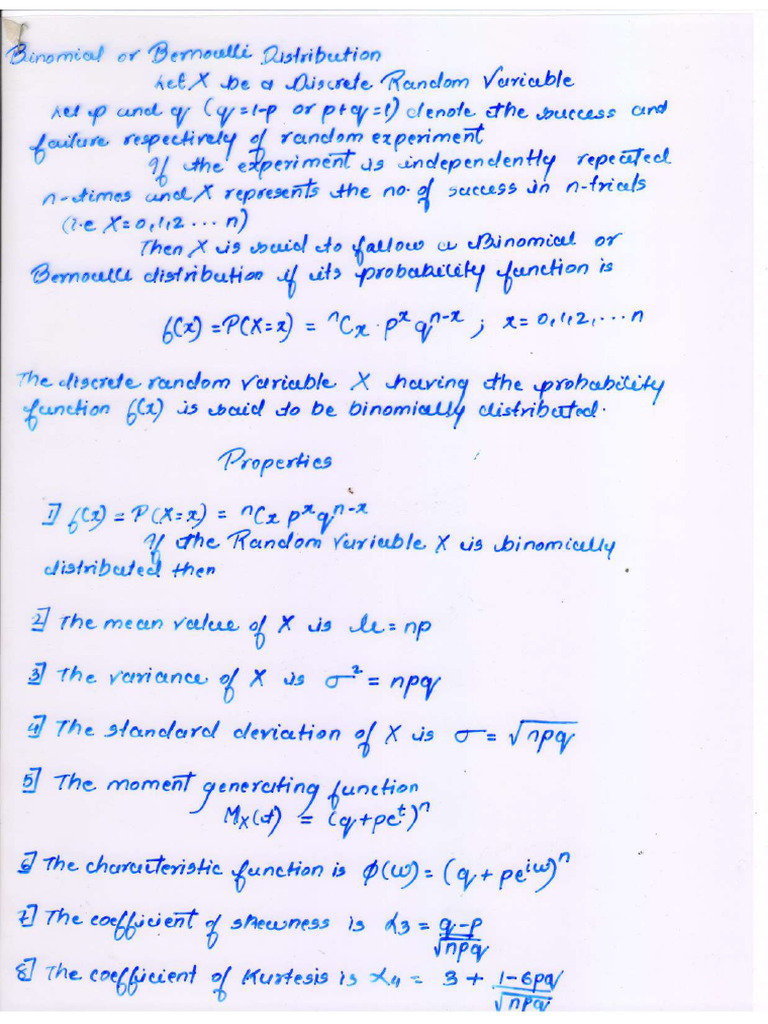 Binomial or Bernoulli Distribution
Let X be a Discrete Random Variable
Let p and q (q=1-p or p+q=1) denote the success and
failure respectively of random experiment
If the experiment is independently repeated
n-times and X represents the no. of success in n-trials
(i.e X=0,1,2 ... n)
Then X is said to follow a Binomial or
Bernoulli distribution if its probability function is
f(x) = P(X=x) = ⁿCₓ · pˣ qⁿ⁻ˣ ; x = 0,1,2,...n
The discrete random variable X having the probability
function f(x) is said to be binomially distributed.
Properties
1] f(x) = P(X=x) = ⁿCₓ pˣ qⁿ⁻ˣ
If the Random Variable X is binomially
distributed then
2] The mean value of X is μ = np
3] The variance of X is σ² = npq
4] The standard deviation of X is σ = √npq
5] The moment generating function
Mₓ(t) = (q+peᵗ)ⁿ
6] The characteristic function is φ(ω) = (q + pe^{iω})ⁿ
7] The coefficient of skewness is α₃ = q-p/√npq
8] The coefficient of Kurtesis is α₄ = 3 + 1-6pq/√npq